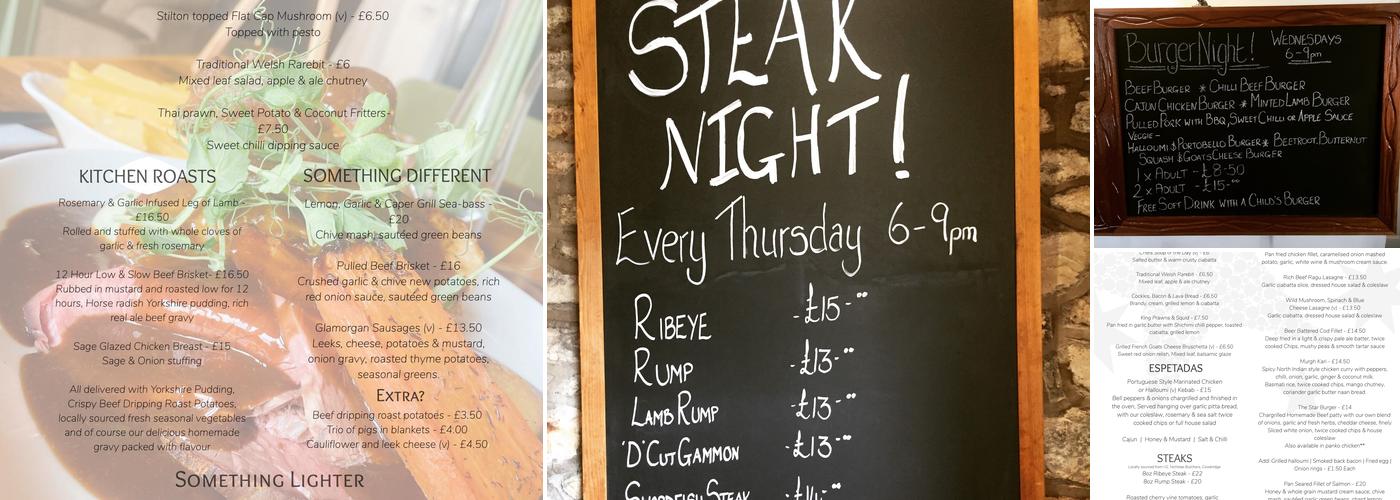 Stilton topped Flat Cap Mushroom (v) - £6.50
Topped with pesto
Traditional Welsh Rarebit - £6
Mixed leaf salad, apple & ale chutney
Thai prawn, Sweet Potato & Coconut Fritters-
£7.50
Sweet chilli dipping sauce
KITCHEN ROASTS
Rosemary & Garlic Infused Leg of Lamb -
£16.50
Rolled and stuffed with whole cloves of
garlic & fresh rosemary
12 Hour Low & Slow Beef Brisket- £16.50
Rubbed in mustard and roasted low for 12
hours, Horse radish Yorkshire pudding, rich
real ale beef gravy
Sage Glazed Chicken Breast - £15
Sage & Onion stuffing
All delivered with Yorkshire Pudding,
Crispy Beef Dripping Roast Potatoes,
locally sourced fresh seasonal vegetables
and of course our delicious homemade
gravy packed with flavour
SOMETHING DIFFERENT
Lemon, Garlic & Caper Grill Sea-bass -
£20
Chive mash, sautéed green beans
Pulled Beef Brisket - £16
Crushed garlic & chive new potatoes, rich
red onion sauce, sautéed green beans
Glamorgan Sausages (v) - £13.50
Leeks, cheese, potatoes & mustard,
onion gravy, roasted thyme potatoes,
seasonal greens.
EXTRA?
Beef dripping roast potatoes - £3.50
Trio of pigs in blankets - £4.00
Cauliflower and leek cheese (v) - £4.50
SOMETHING LIGHTER
STEAK
NIGHT!
Every Thursday 6-9pm
RIBEYE -£15-00
RUMP -£13-00
LAMB RUMP -£13-00
'D' CUT GAMMON -£13-00
SWORDFISH STEAK -£14-00
Burger Night! WEDNESDAYS
6-9pm
BEEF BURGER * CHILLI BEEF BURGER
CAJUN CHICKEN BURGER * MINTED LAMB BURGER
PULLED PORK WITH BBQ, SWEET CHILLI OR APPLE SAUCE
VEGGIE -
HALLOUMI & PORTOBELLO BURGER * BEETROOT, BUTTERNUT
SQUASH & GOATS CHEESE BURGER
1 x ADULT - £8-50
2 x ADULT - £15-00
FREE SOFT DRINK WITH A CHILD'S BURGER
Chefs Soup of the Day (v) - £6
Salted butter & warm crusty ciabatta
Traditional Welsh Rarebit - £6.50
Mixed leaf, apple & ale chutney
Cockles, Bacon & Lava Bread - £6.50
Brandy, cream, grilled lemon & ciabatta
King Prawns & Squid - £7.50
Pan fried in garlic butter with Shichimi chilli pepper, toasted
ciabatta, grilled lemon
Grilled French Goats Cheese Bruschetta (v) - £6.50
Sweet red onion relish, Mixed leaf, balsamic glaze
ESPETADAS
Portuguese Style Marinated Chicken
or Halloumi (v) Kebab - £15
Bell peppers & onions chargrilled and finished in
the oven, Served hanging over garlic pitta bread,
with our coleslaw, rosemary & sea salt twice
cooked chips or full house salad
Cajun | Honey & Mustard | Salt & Chilli
STEAKS
8oz Ribeye Steak - £22
8oz Rump Steak - £20
Roasted cherry vine tomatoes, garlic
Pan fried chicken fillet, caramelised onion mashed
potato, garlic, white wine & mushroom cream sauce.
Rich Beef Ragu Lasagne - £13.50
Garlic ciabatta slice, dressed house salad & coleslaw
Wild Mushroom, Spinach & Blue
Cheese Lasagne (v) - £13.50
Garlic ciabatta, dressed house salad & coleslaw
Beer Battered Cod Fillet - £14.50
Deep fried in a light & crispy pale ale batter, twice
cooked Chips, mushy peas & smooth tartar sauce
Murgh Kari - £14.50
Spicy North Indian style chicken curry with peppers,
chilli, onion, garlic, ginger & coconut milk.
Basmati rice, twice cooked chips, mango chutney,
coriander garlic butter naan bread.
The Star Burger - £14
Chargrilled Homemade Beef patty with our own blend
of onions, garlic and fresh herbs, cheddar cheese, finely
Sliced white onion, twice cooked chips & house
coleslaw
Also available in panko chicken**
Add: Grilled halloumi | Smoked back bacon | Fried egg |
Onion rings - £1.50 Each
Pan Seared Fillet of Salmon - £20
Honey & whole grain mustard cream sauce, chive